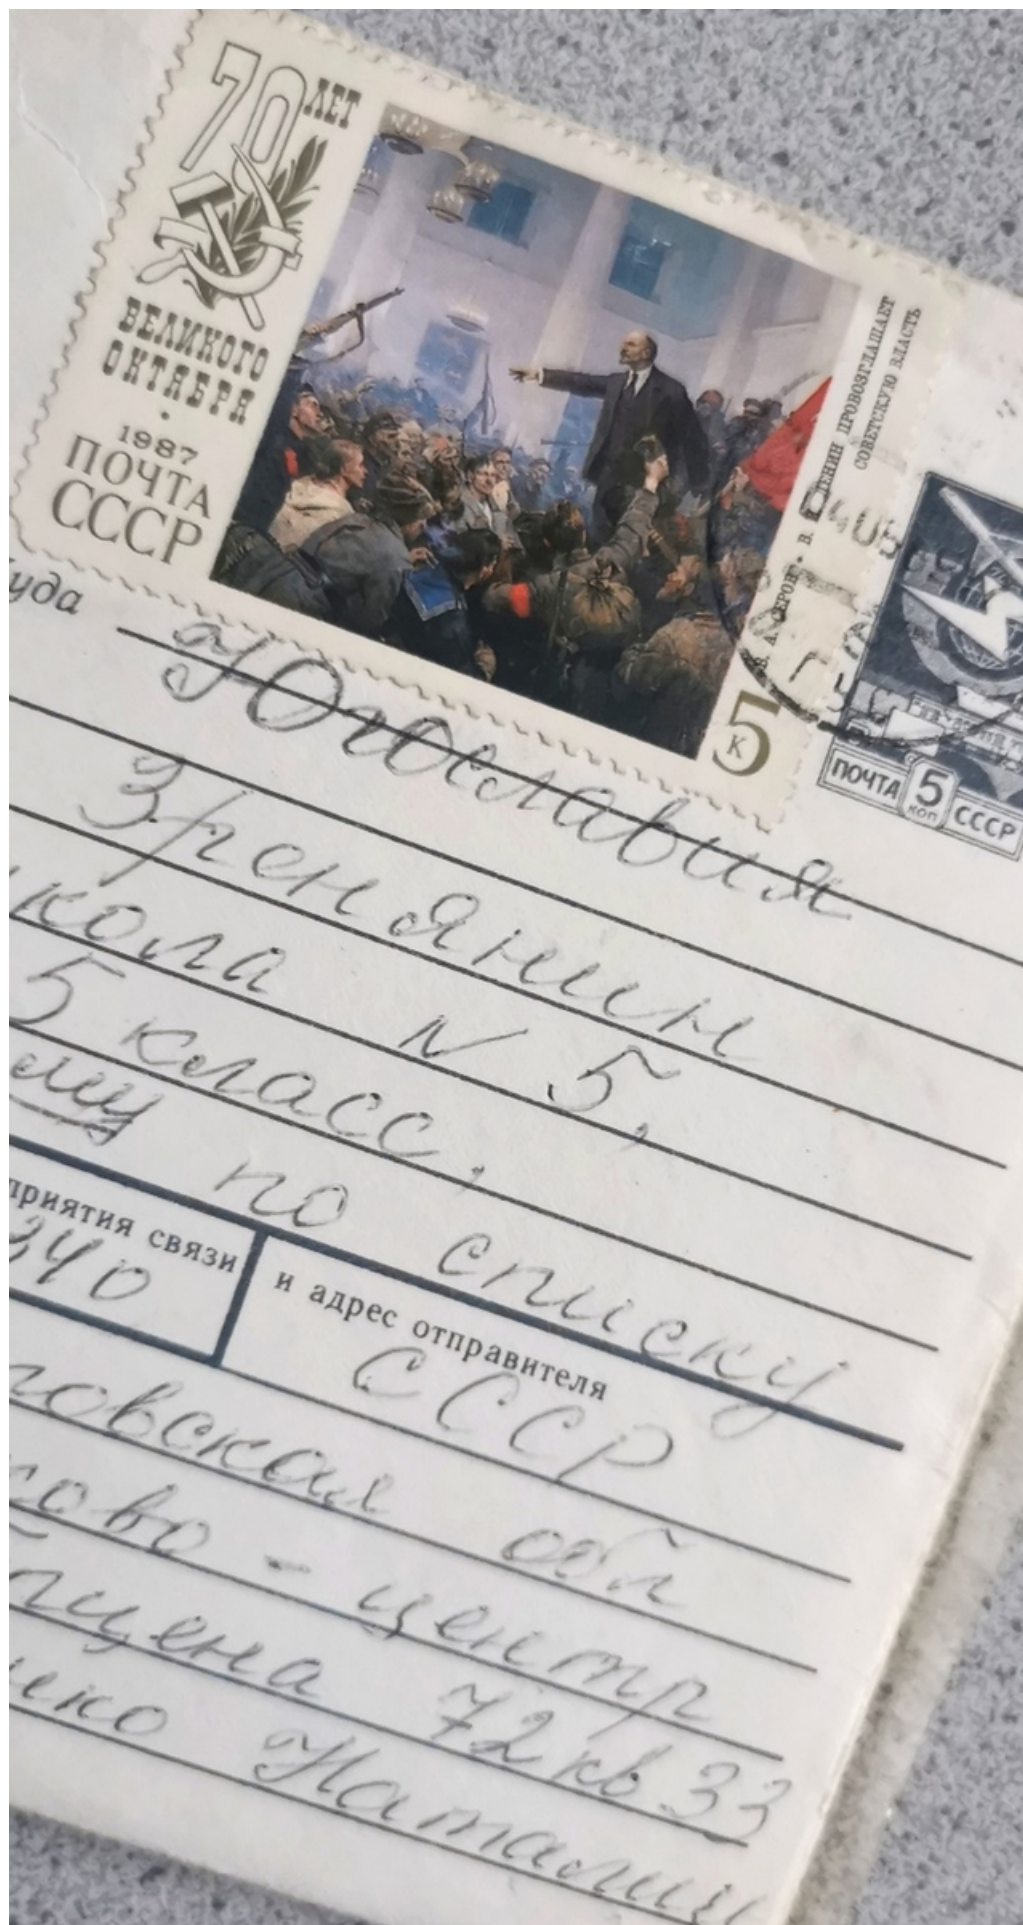 70 ЛЕТ
ВЕЛИКОГО
ОКТЯБРЯ
1987
ПОЧТА
СССР
ЛЕНИН ПРОВОЗГЛАШАЕТ
СОВЕТСКУЮ ВЛАСТЬ
5
К
ПОЧТА 5 КОП СССР
уда
Югославия
Зренянин
кола N 5,
5 класс,
ому по списку
приятия связи
340
и адрес отправителя
СССР
говская обл
сово - центр
пцена 72 кв 33
нко Наталии